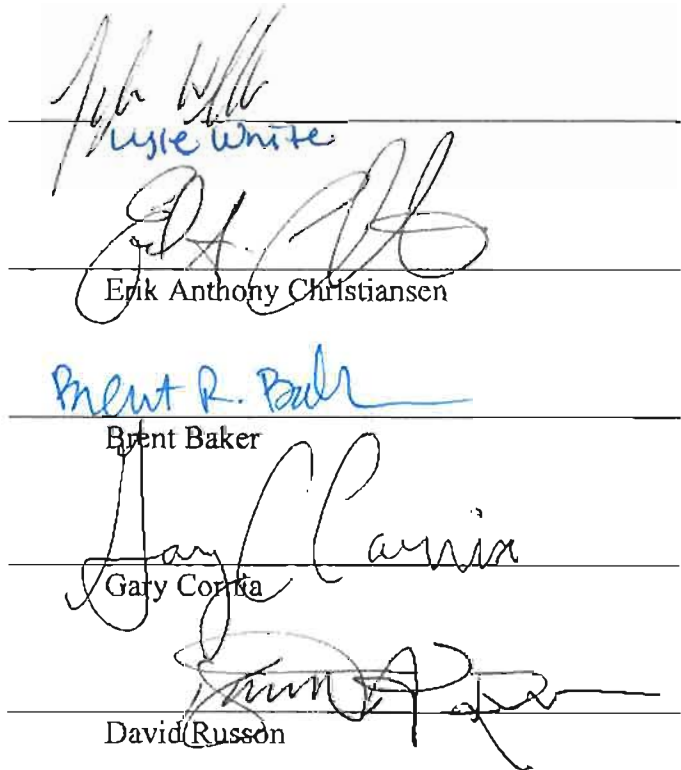 White
Erik Anthony Christiansen
Brent R. Baker
Brent Baker
Gary C Cornia
Gary Cornia
David Russon